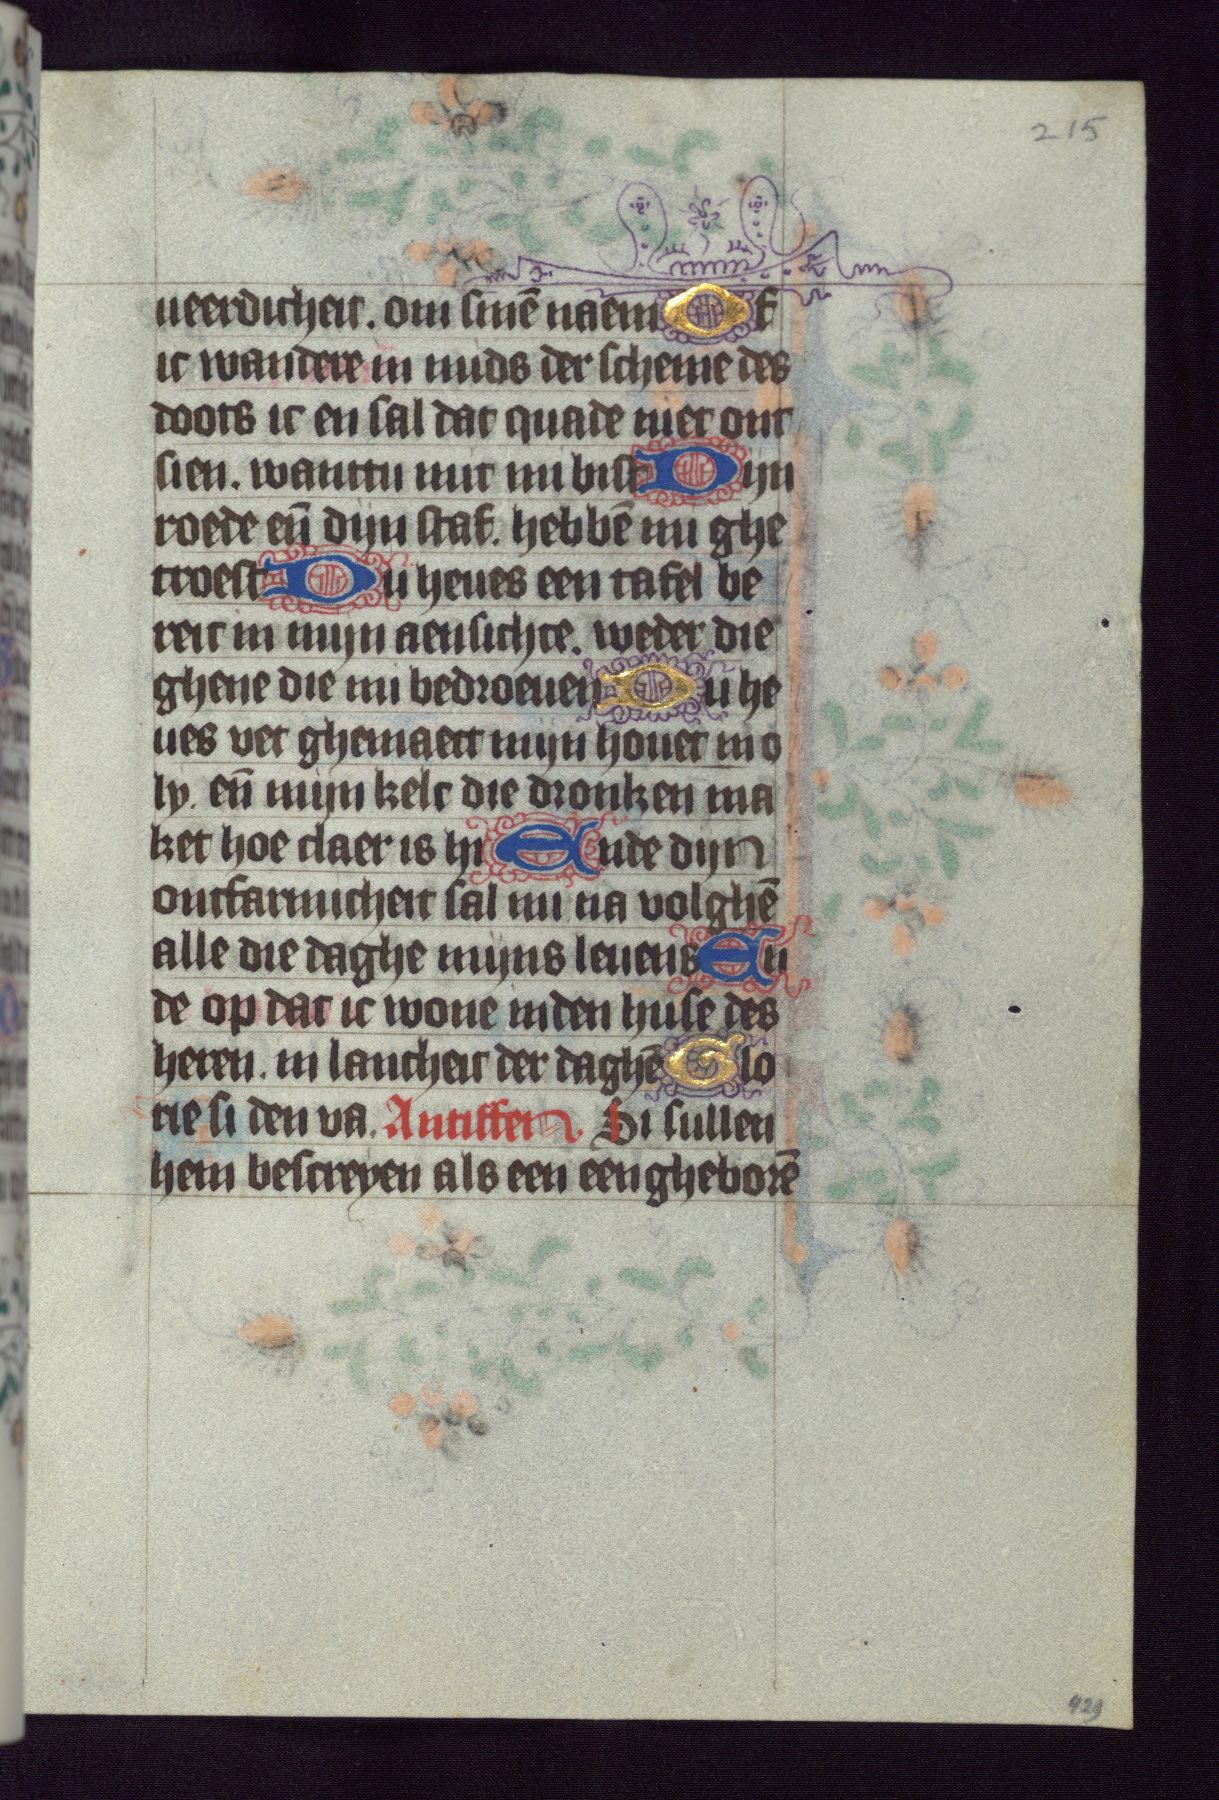 215
ueerdicheit. om sinē naem Of
ic wandere in mids der scheme des
doots ic en sal dat quade niet ont
sien. wanttu mit mi bist Dijn
roede eñ dijn staf. hebbē mi ghe
troest Du heues een tafel be
reit in mijn aensichte. weder die
ghene die mi bedroeuen Du he
ues vet ghemaect mijn houet in o
ly. eñ mijn kelc die dronken ma
ket hoe claer is hi Ende dijn
ontfarmicheit sal mi na volghē
alle die daghe mijns leuens En
de op dat ic wone inden huse des
heren. in lancheit der daghē Glo
rie si den va. Antiffen. Si sullen
hem bescreyen als een eengheborē
429